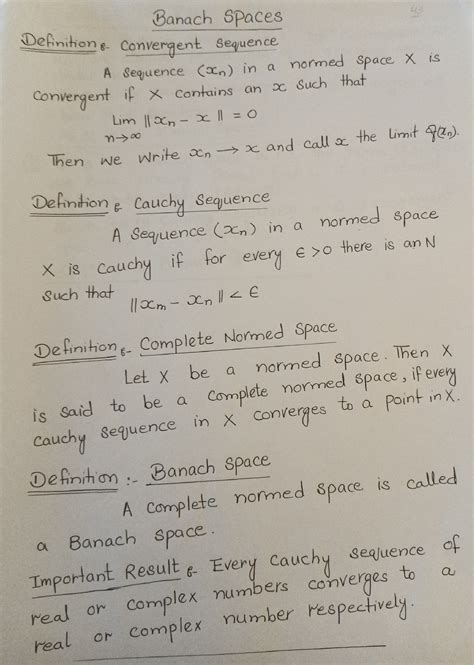 Banach Spaces
Definition :- Convergent Sequence
A Sequence (xn) in a normed space X is
convergent if X contains an x such that
Lim ‖xn - x‖ = 0
n→∞
Then we write xn → x and call x the limit of (xn).
Definition :- Cauchy Sequence
A Sequence (xn) in a normed space
X is cauchy if for every ϵ>0 there is an N
such that ‖xm - xn‖ < ϵ
Definition :- Complete Normed Space
Let X be a normed space. Then X
is said to be a complete normed space, if every
cauchy sequence in X converges to a point in X.
Definition :- Banach Space
A complete normed space is called
a Banach space.
Important Result :- Every Cauchy sequence of
real or complex numbers converges to a
real or complex number respectively.